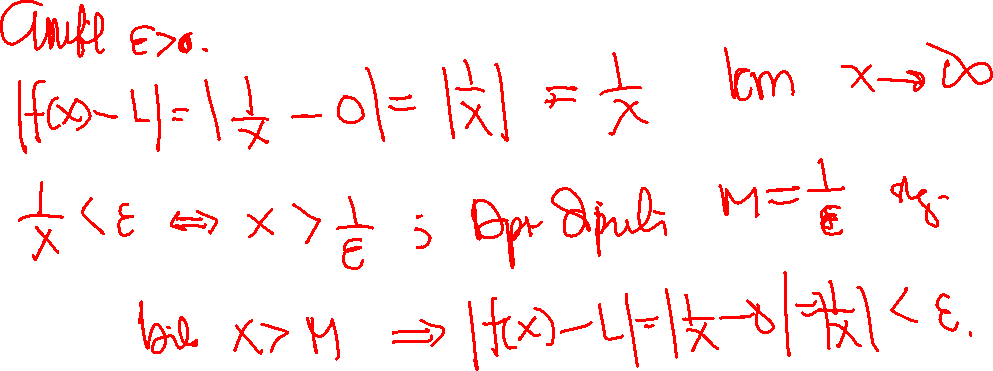 Ambil ε>0.
|f(x)-L|=|1/x - 0|=|1/x| = 1/x krn x→∞
1/x < ε ⇔ x > 1/ε ; Dpt dipilih M=1/ε dg.
bila x>M ⇒ |f(x)-L|=|1/x-0|=|1/x|<ε.